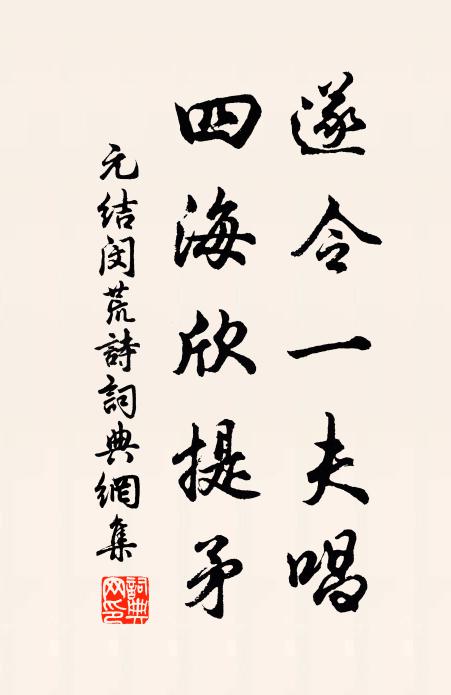 遂令一夫唱
四海欣提矛
元结闵荒詩詞典網集
詞典网印